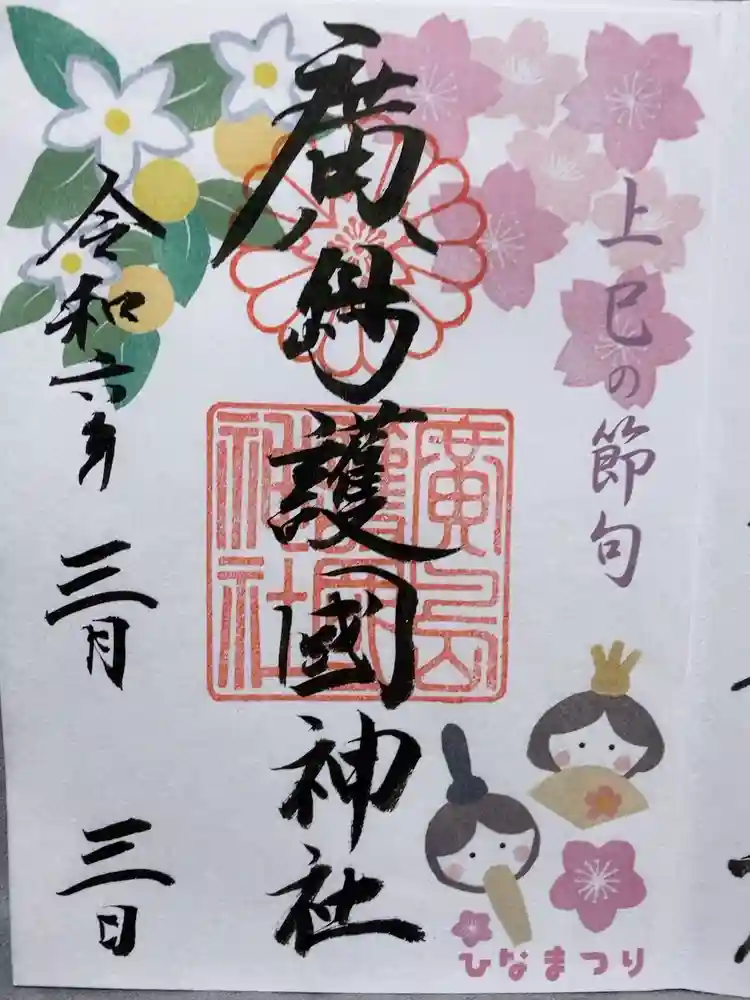 上巳の節句
廣嶋護國神社
廣島護國神社
令和六年
三月
三日
ひなまつり